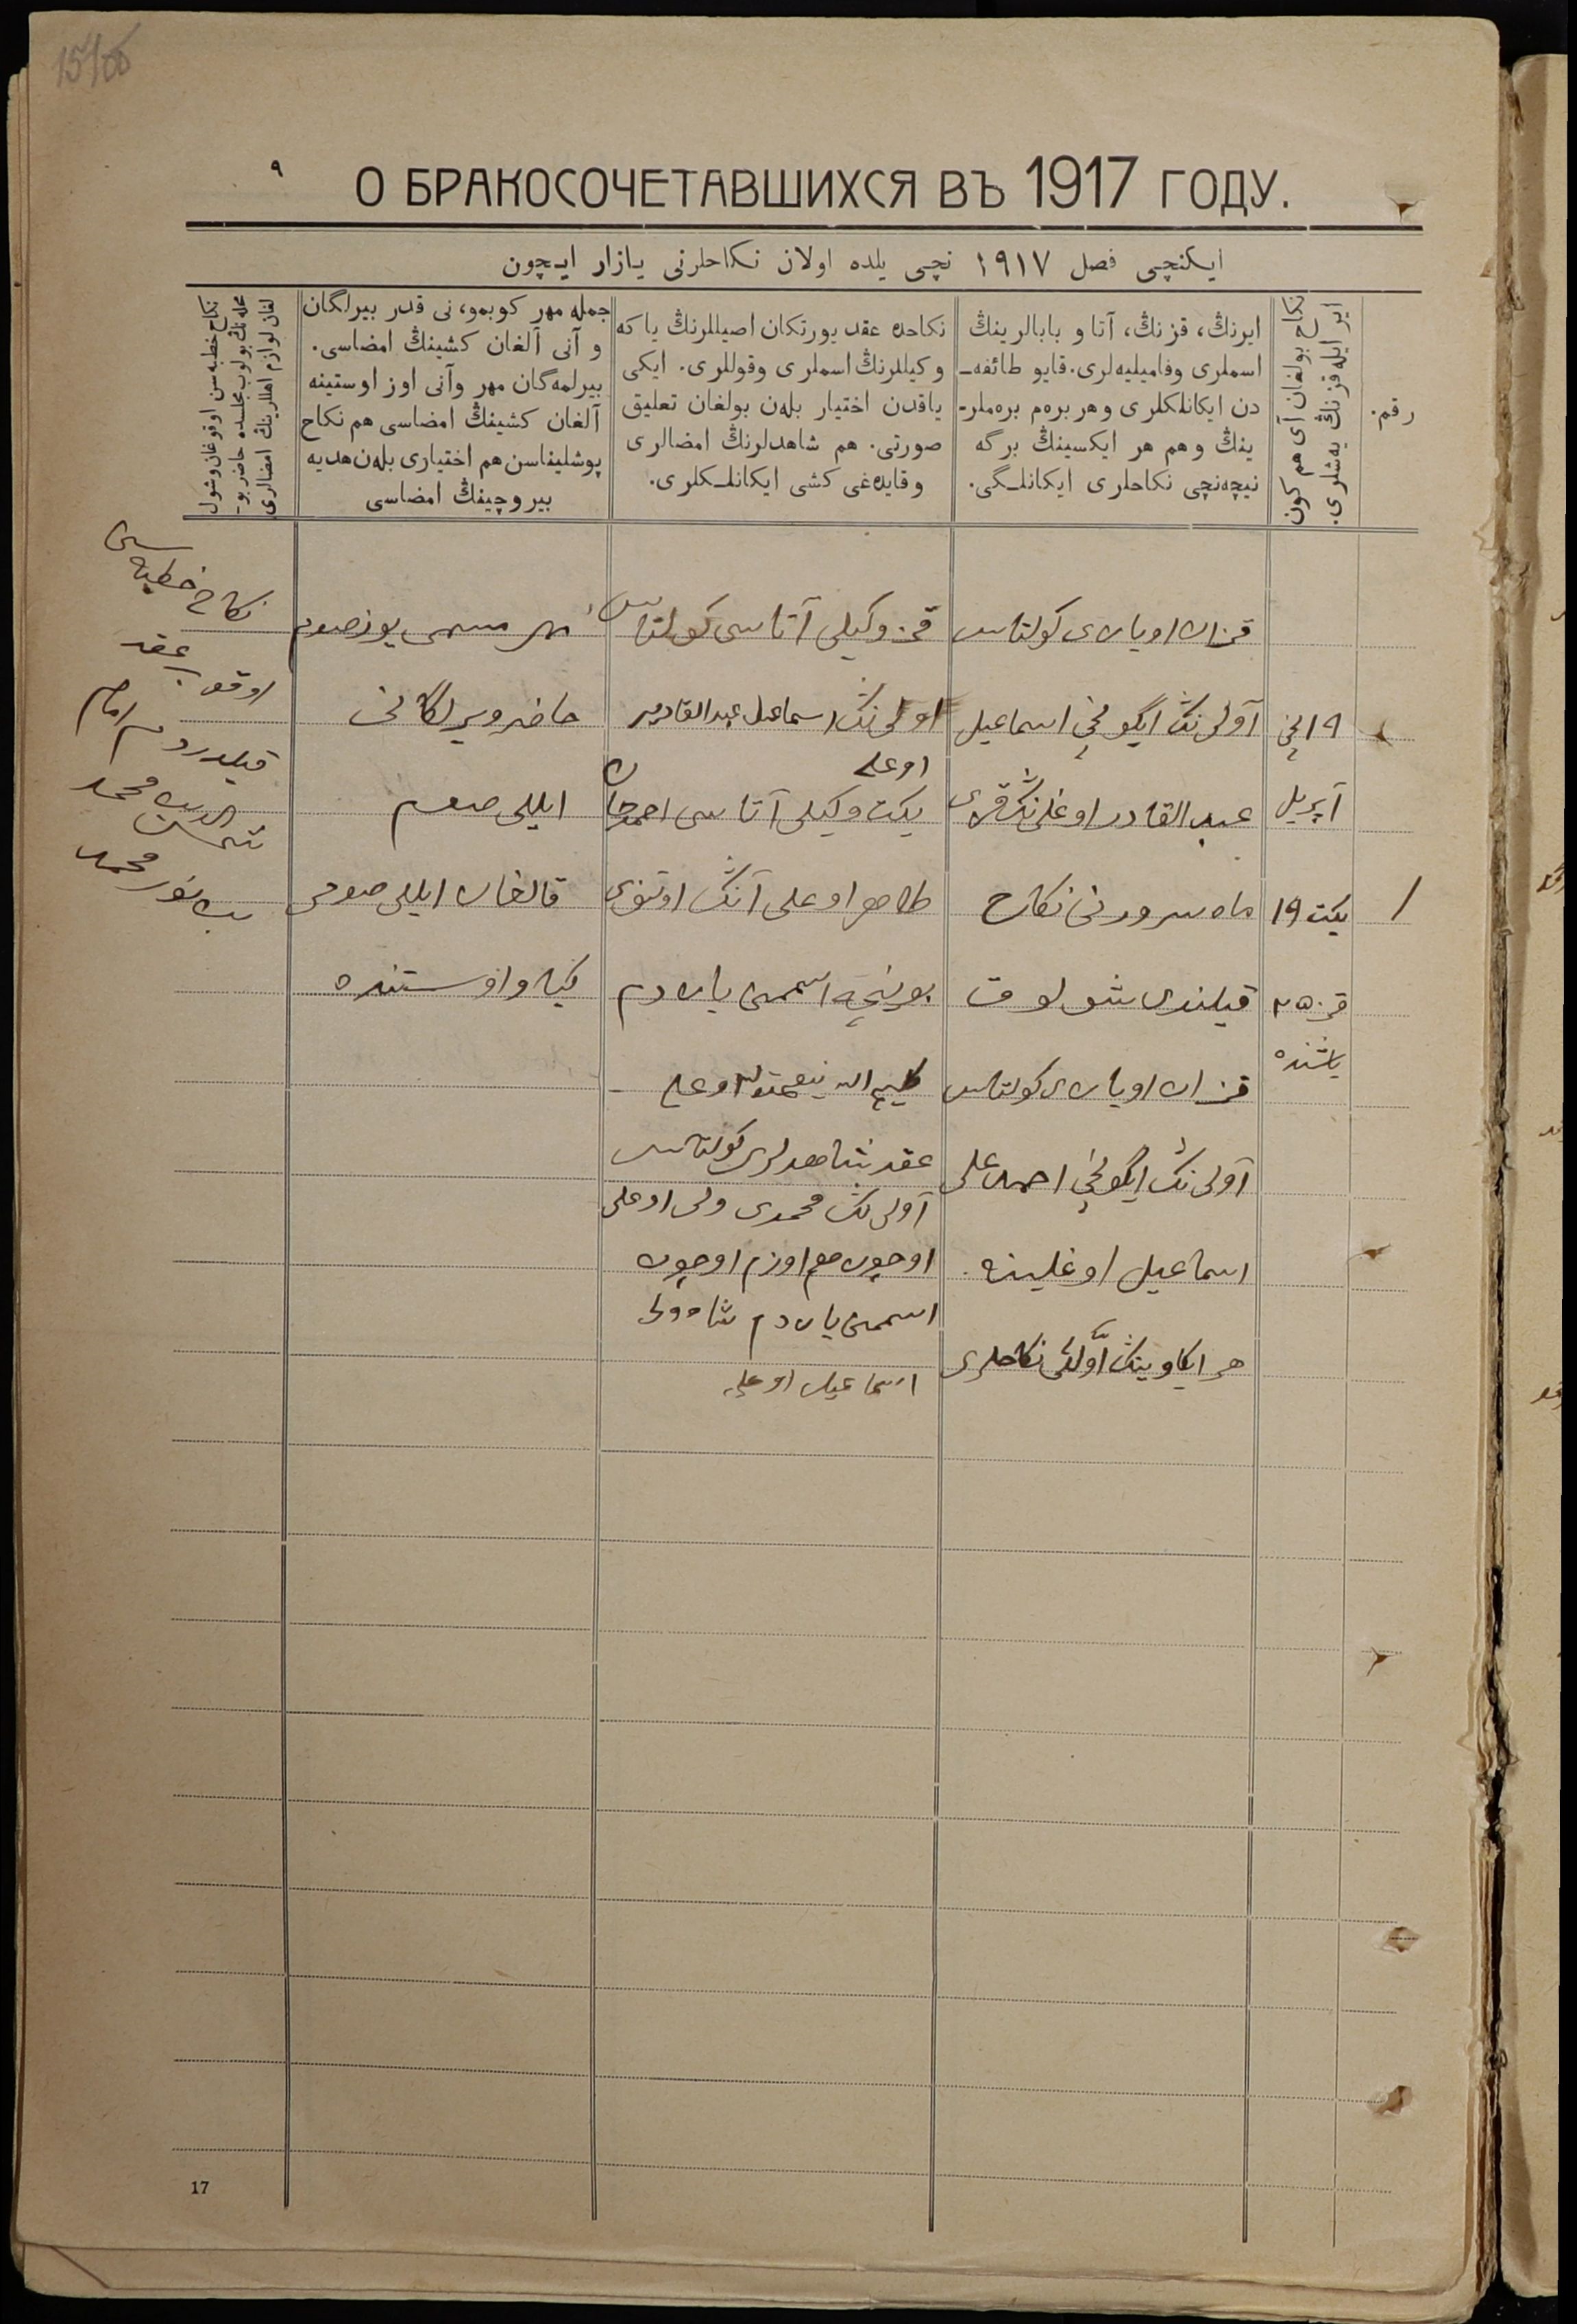 15/об
٩
О БРАКОСОЧЕТАВШИХСЯ ВЪ 1917 ГОДУ.
ایکنچی فصل ١٩١٧ نچی یلده اولان نکاحلرنی یازار ایچون
رقم.
نکاح بولغان آی هم کون
ایر ایله قزنڭ یەشلری.
ایرنڭ، قزنڭ، آتا و بابالرینڭ
اسملری وفامیلیه‌لری. قایو طائفه‌ـ
دن ایکانلکلری و هر بره‌م بره‌ملرـ
ینڭ و هم هر ایکسینڭ برگه
نیچه‌نچی نکاحلری ایکانلـگی.
نکاحده عقد یورتکان اصیللرنڭ یا که
وکیللرنڭ اسملری وقوللری. ایکی
یاقدن اختیار بله‌ن بولغان تعلیق
صورتی. هم شاهدلرنڭ امضالری
وقایده‌غی کشی ایکانلـکلری.
جمله مهر کوبمو، نی قدر بیرلگان
و آنی آلغان کشینڭ امضاسی.
بیرلمه‌گان مهر وآنی اوز اوستینه
آلغان کشینڭ امضاسی هم نکاح
پوشلیناسن هم اختیاری بله‌ن هدیه
بیروچینڭ امضاسی
نکاح خطبه‌سن اوقوغان وشول
محله‌نڭ بولوب مجلسده حاضر بوـ
لغان لوازم اهللرینڭ امضالری
1
19 نچی
آپریل
یکت 19
قز ٢٥
یاشنده
قزان اویازی کولتاس
آولی نڭ ایگونچی اسماعیل
عبدالقادر اوغلی نڭ قزی
ماه سرور نی نکاح
قیلندی شولوق
قزان اویازی کولتاس
آولی نڭ ایگونچی احمدعلی
اسماعیل اوغلینه.
هر ایکاوینڭ اوّلگی نکاحلری
قز وکیلی آتاسی کولتاس
اولی نڭ اسماعیل عبدالقادر
اوغلی
یکت وکیلی آتاسی احمدجان
طاهر اوغلی آنڭ اوتنوی
بوینچه اسممنی یازدم
اوغلی
عقد شاهدلری کولتاس
آولی نڭ محمدی ولی اوغلی
اوچون هم اوزم اوچون
اسممنی یازدم شاه ولی
اسماعیل اوغلی
مهر مسمی یوز صوم
حاضر ویرلگانی
ایللی صوم
قالغان ایللی صومی
کیاو اوستنده
نکاح خطبه سی
اوقوب عقد
قیلدردم امام
شمس الدین محمد
بن نور محمد
17